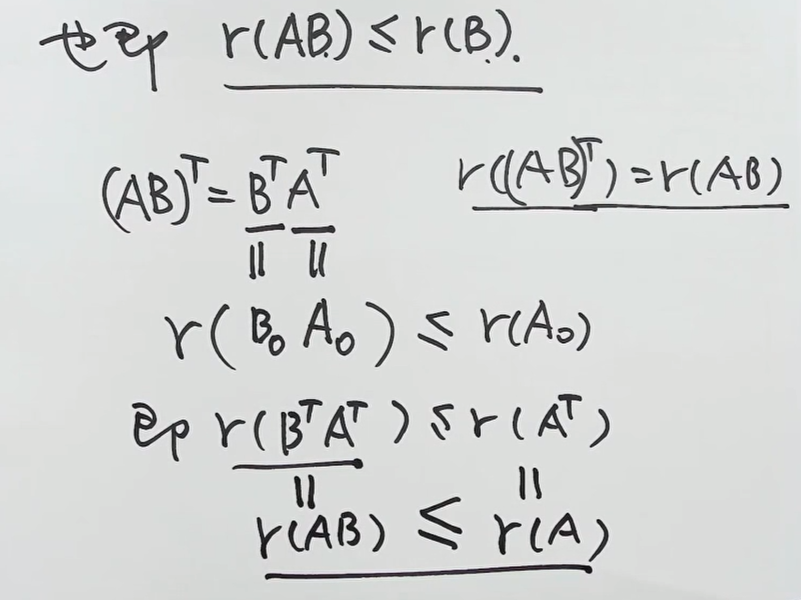 也即 r(AB) ≤ r(B).
(AB)ᵀ = BᵀAᵀ r((AB)ᵀ) = r(AB)
|| ||
r(B₀ A₀) ≤ r(A₀)
即 r(BᵀAᵀ) ≤ r(Aᵀ)
|| ||
r(AB) ≤ r(A)